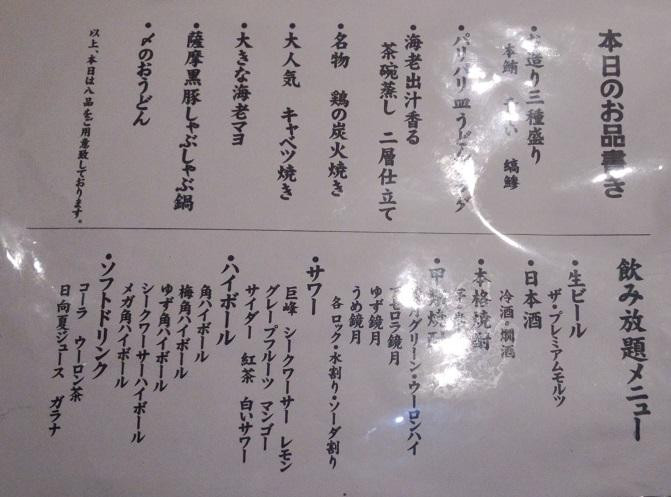 本日のお品書き
・お造り三種盛り
本鮪 縞鰺
・パリパリ皿うどん
・海老出汁香る
茶碗蒸し 二層仕立て
・名物 鶏の炭火焼き
・大人気 キャベツ焼き
・大きな海老マヨ
・薩摩黒豚しゃぶしゃぶ鍋
・〆のおうどん
以上、本日は八品をご用意致しております。
飲み放題メニュー
・生ビール
ザ・プレミアムモルツ
・日本酒
冷酒・燗酒
・本格焼酎
・甲類焼酎
グリーン・ウーロンハイ
アセロラ鏡月
ゆず鏡月
うめ鏡月
各ロック・水割り・ソーダ割り
・サワー
巨峰 シークワーサー レモン
グレープフルーツ マンゴー
サイダー 紅茶 白いサワー
・ハイボール
角ハイボール
梅角ハイボール
ゆず角ハイボール
シークワーサーハイボール
メガ角ハイボール
・ソフトドリンク
コーラ ウーロン茶
日向夏ジュース ガラナ